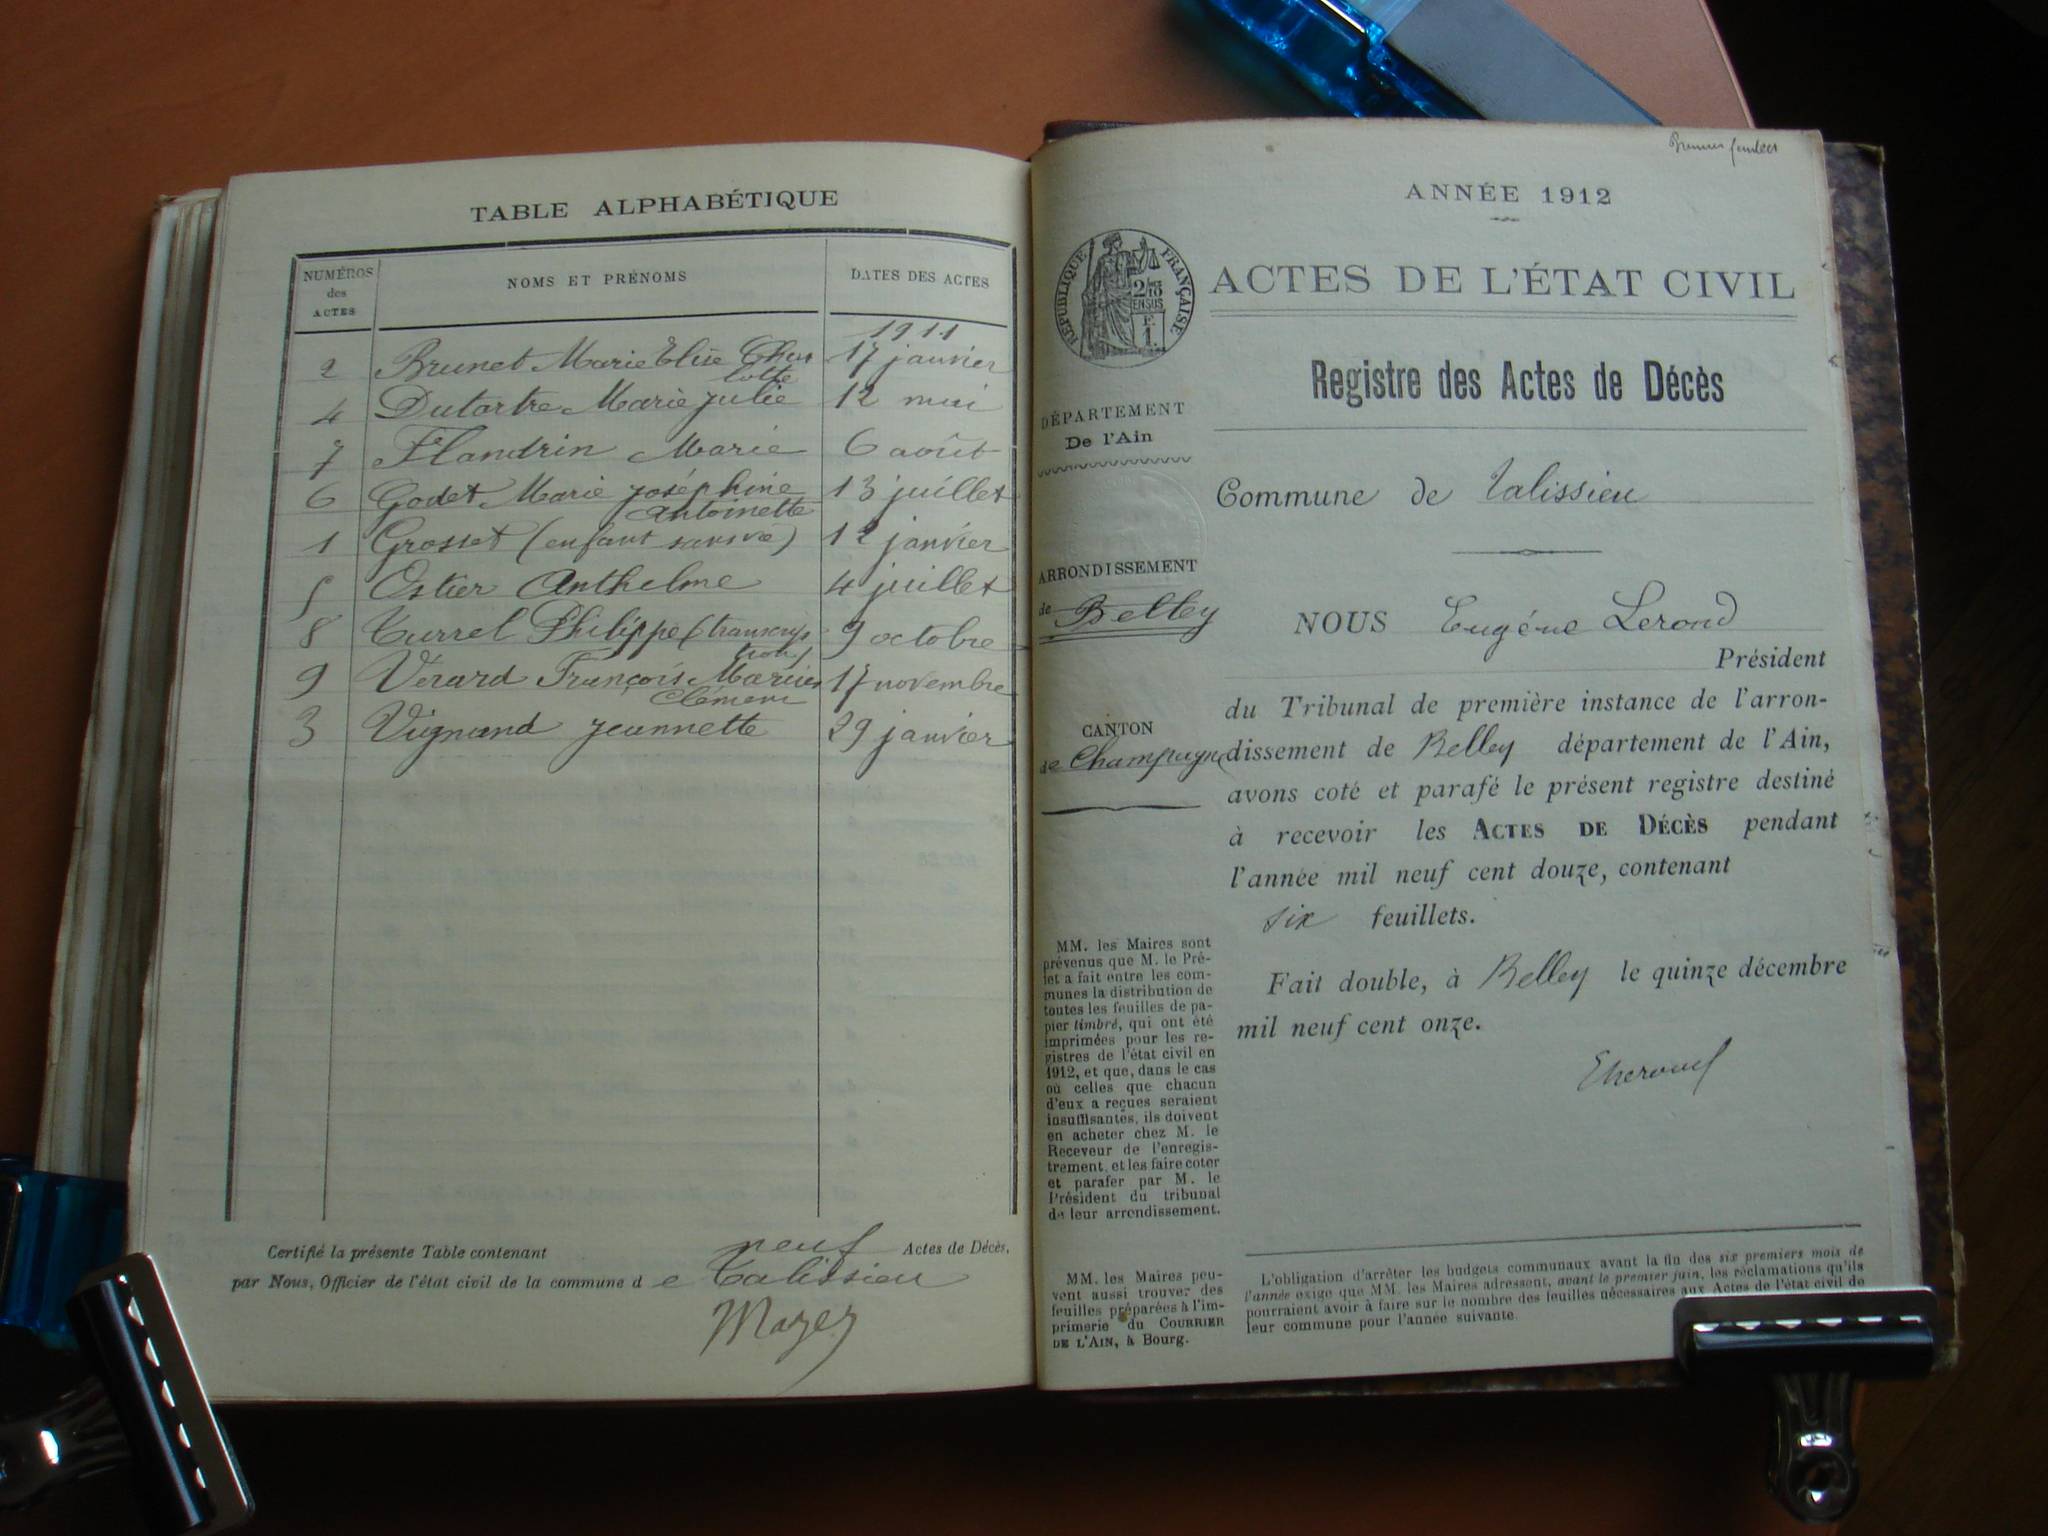 TABLE ALPHABÉTIQUE
NUMÉROS des ACTES
NOMS ET PRÉNOMS
DATES DES ACTES
1911
2 Brunet Marie Elise Char 17 janvier
lotte
4 Dutartre Marie Julie 12 mai
7 Flandrin Marie 6 août
6 Godet Marie Joséphine 13 juillet
Antoinette
1 Grosset (enfant sans vie) 12 janvier
5 Estier Anthelme 4 juillet
8 Turrel Philippe (transcrip 9 octobre
tion)
9 Vérard François Marius 17 novembre
Clément
3 Vignand Jeannette 29 janvier
Certifié la présente Table contenant neuf Actes de Décès,
par Nous, Officier de l'état civil de la commune d e Talissieu
Premier feuillet
ANNÉE 1912
RÉPUBLIQUE FRANÇAISE
2/10
EN SUS
F.
1.
ACTES DE L'ÉTAT CIVIL
Registre des Actes de Décès
DÉPARTEMENT
De l'Ain
Commune de Talissieu
ARRONDISSEMENT
de Belley
CANTON
de Champagne
NOUS Eugéne Lerond
Président
du Tribunal de première instance de l'arron-
dissement de Belley département de l'Ain,
avons coté et parafé le présent registre destiné
à recevoir les ACTES DE DÉCÈS pendant
l'année mil neuf cent douze, contenant
six feuillets.
Fait double, à Belley le quinze décembre
mil neuf cent onze.
MM. les Maires sont
prévenus que M. le Pré-
fet a fait entre les com-
munes la distribution de
toutes les feuilles de pa-
pier timbré, qui ont été
imprimées pour les re-
gistres de l'état civil en
1912, et que, dans le cas
où celles que chacun
d'eux a reçues seraient
insuffisantes, ils doivent
en acheter chez M. le
Receveur de l'enregis-
trement, et les faire coter
et parafer par M. le
Président du tribunal
de leur arrondissement.
MM. les Maires peu-
vent aussi trouver des
feuilles préparées à l'im-
primerie du COURRIER
DE L'AIN, à Bourg.
L'obligation d'arrêter les budgets communaux avant la fin des six premiers mois de
l'année exige que MM. les Maires adressent, avant le premier juin, les réclamations qu'ils
pourraient avoir à faire sur le nombre des feuilles nécessaires aux Actes de l'état civil de
leur commune pour l'année suivante.